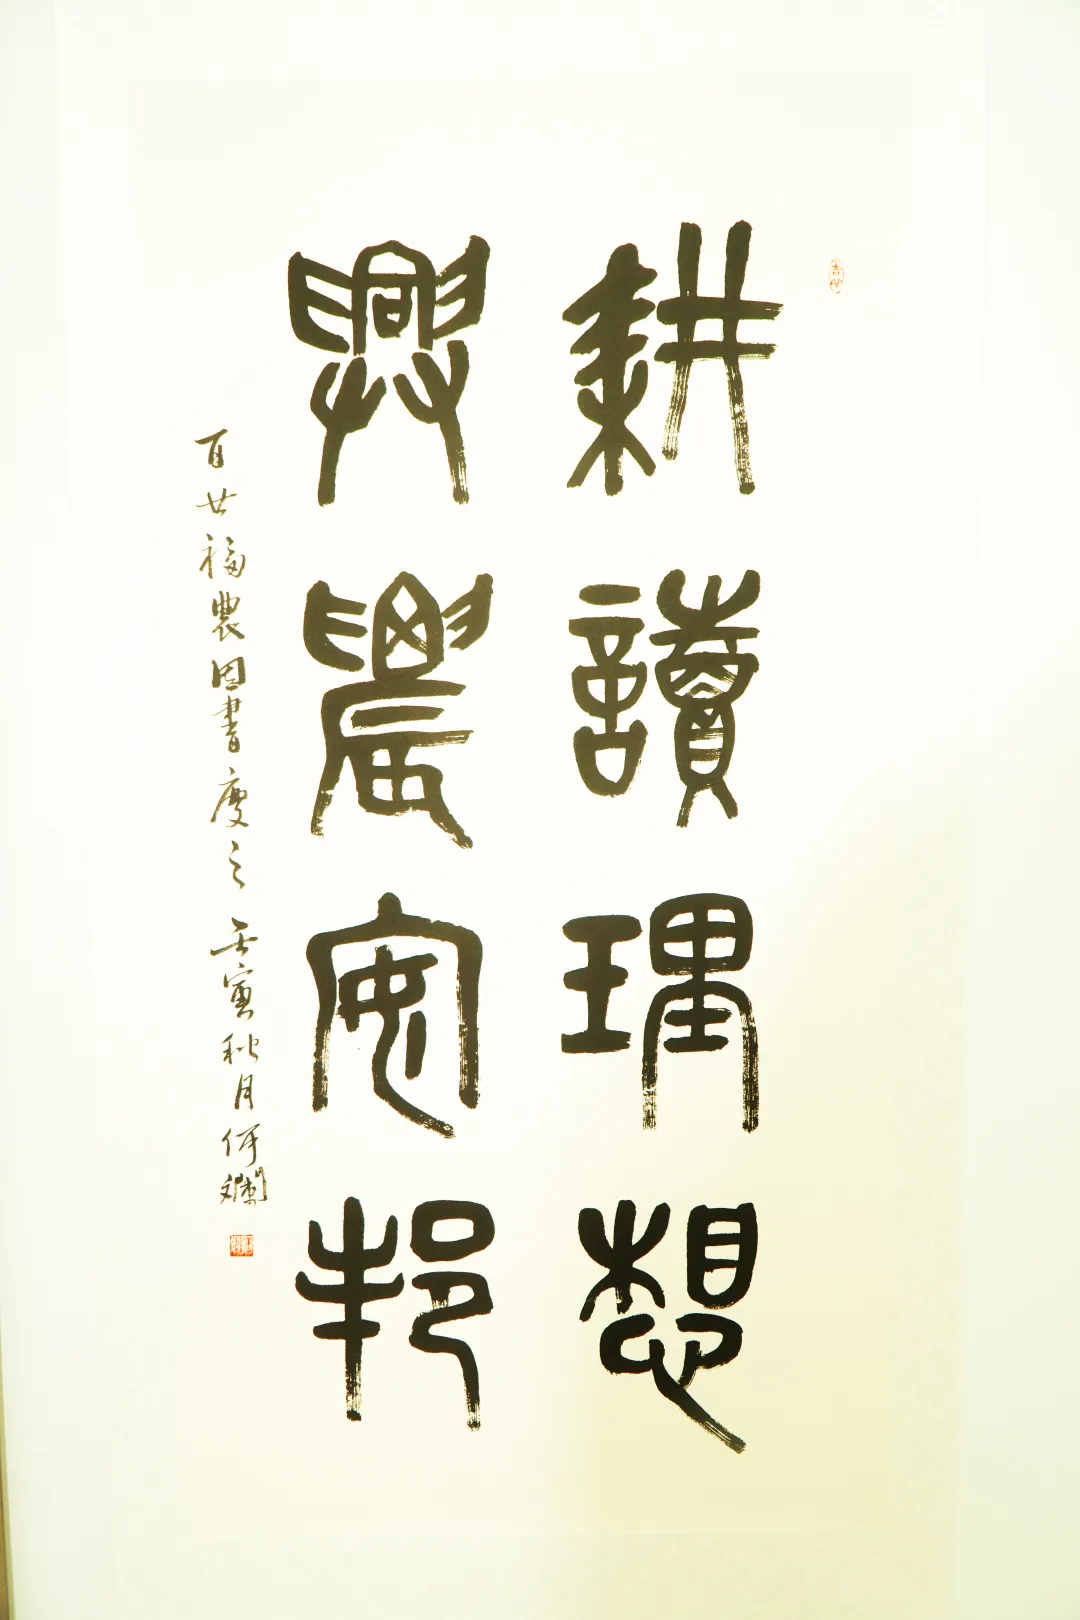 耕讀理想
興農安邦
百廿福農因書慶之壬寅秋月何斓